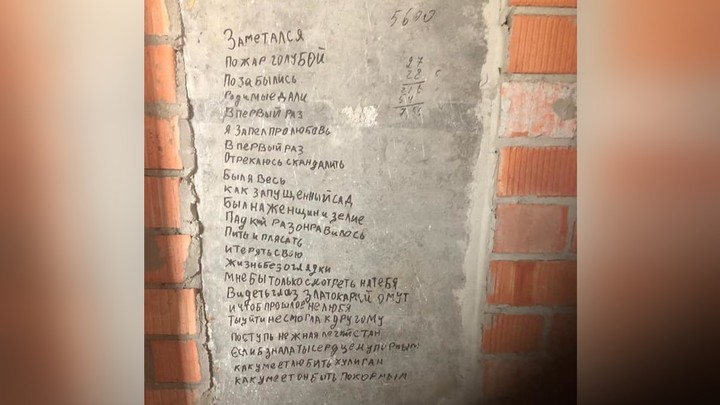 5600
ЗАМЕТАЛСЯ
ПОЖАР ГОЛУБОЙ
27
ПОЗАБЫЛИСЬ
22
РОДИМЫЕ ДАЛИ
В ПЕРВЫЙ РАЗ
Я ЗАПЕЛ ПРО ЛЮБОВЬ
В ПЕРВЫЙ РАЗ
ОТРЕКАЮСЬ СКАНДАЛИТЬ
БЫЛ Я ВЕСЬ
КАК ЗАПУЩЕННЫЙ САД
БЫЛ НА ЖЕНЩИН И ЗЕЛИЕ
ПАДКИЙ РАЗОНРАВИЛОСЬ
ПИТЬ И ПЛЯСАТЬ
И ТЕРЯТЬ СВОЮ
ЖИЗНЬ БЕЗ ОГЛЯДКИ
МНЕ БЫ ТОЛЬКО СМОТРЕТЬ НА ТЕБЯ
ВИДЕТЬ ГЛАЗ ЗЛАТОКАРИЙ ОМУТ
И ЧТОБ ПРОШЛОЕ НЕ ЛЮБЯ
ТЫ УЙТИ НЕ СМОГЛА К ДРУГОМУ
ПОСТУПЬ НЕЖНАЯ ЛЕГКИЙ СТАН
ЕСЛИ Б ЗНАЛА ТЫ СЕРДЦЕМ УПОРНЫМ
КАК УМЕЕТ ЛЮБИТЬ ХУЛИГАН
КАК УМЕЕТ ОН БЫТЬ ПОКОРНЫМ